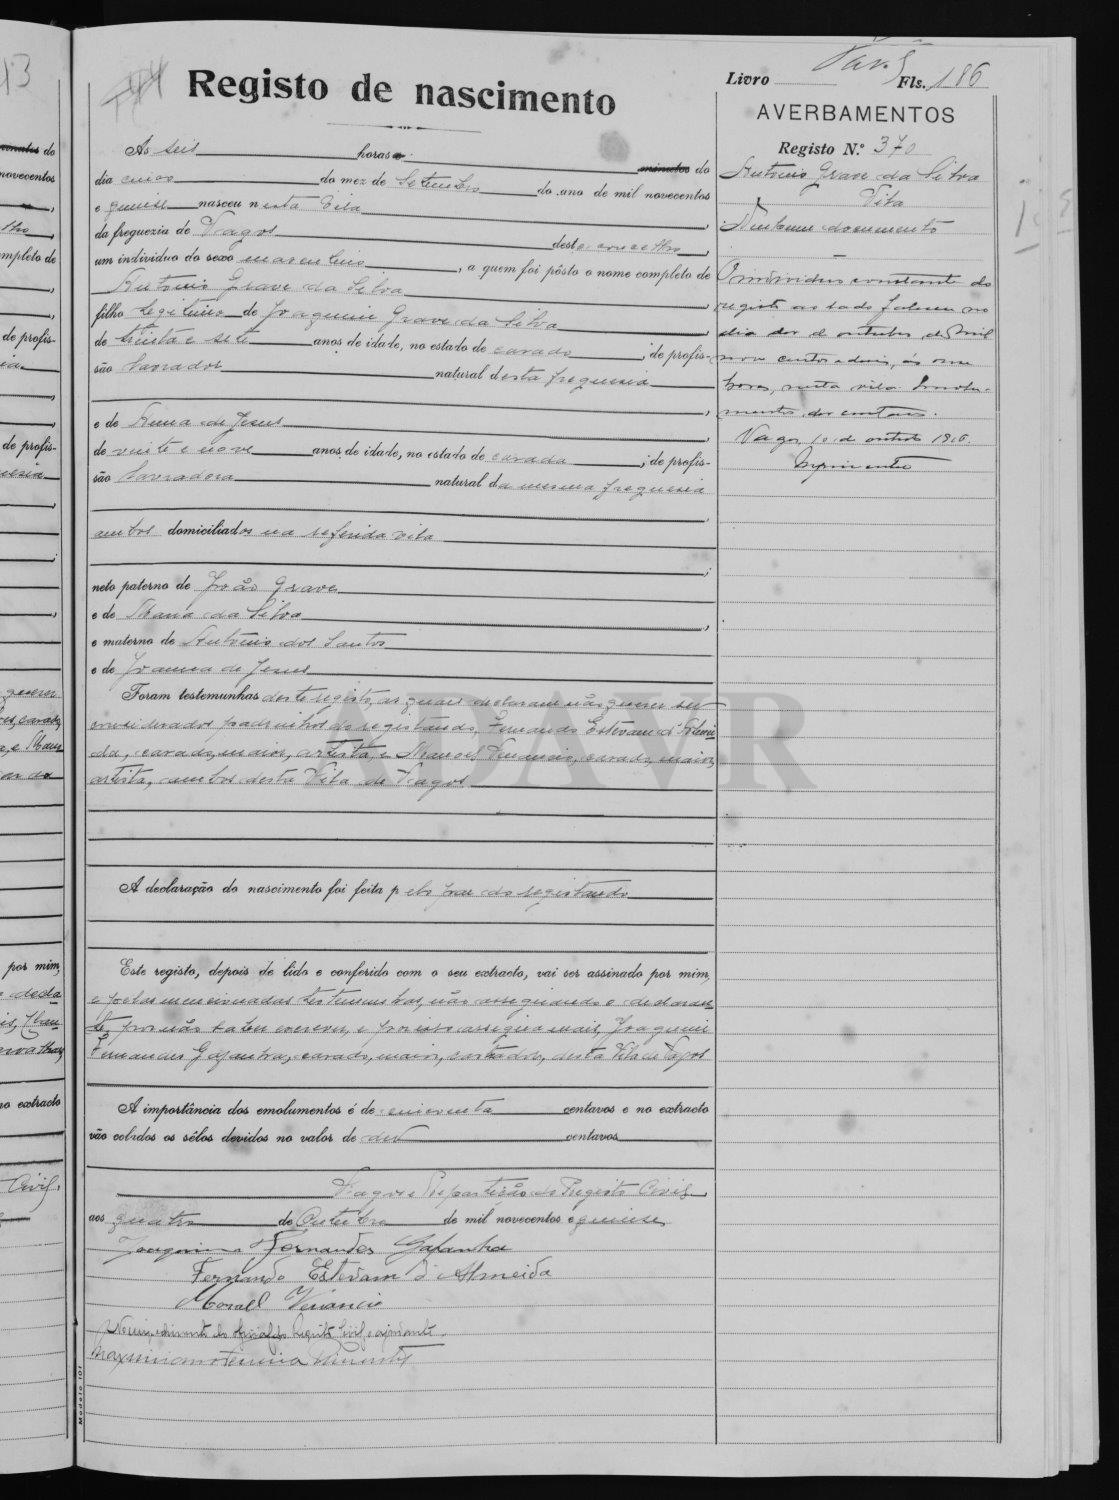 Registo de nascimento
Livro Fls. 186
AVERBAMENTOS
Registo N.º 370
Antonio Grave da Silva
Vila
Nenhum documento
O individuo constante do
registo ao lado faleceu no
dia dez de outubro de mil
horas, nesta vila.
Vagos, 10 de outubro 1916.
As seis horas minutos do
dia cinco do mez de Setembro do ano de mil novecentos
e quinse nasceu nesta Vila
da freguezia de Vagos deste concelho,
um individuo do sexo masculino, a quem foi pôsto o nome completo de
Antonio Grave da Silva,
filho legitimo de Joaquim Grave da Silva
de trinta e sete anos de idade, no estado de casado; de profis-
são lavrador natural desta freguesia,
e de Anna de Jesus,
de vinte e nove anos de idade, no estado de casada; de profis-
são lavradora natural da mesma freguesia,
ambos domiciliados na referida vila;
neto paterno de João Grave
e de Maria da Silva,
e materno de Antonio dos Santos
e de Joanna de Jesus
Foram testemunhas deste registo, as quaes declaram não querer ser
considerados padrinhos do registando, Fernando Estevam d'Almei-
da, casado, maior, artista, e Manoel Venancio, casado, maior,
artista, ambos desta Vila de Vagos
A declaração do nascimento foi feita pelo pae do registando
Este registo, depois de lido e conferido com o seu extracto, vai ser assinado por mim,
e pelas mencionadas testemunhas, não assignando o declaran-
te, por não saber escrever, e por isso assigna mais, Joaquim
Fernandes Gafanha, casado, maior, desta Vila de Vagos
A importância dos emolumentos é de cincoenta centavos e no extracto
vão colados os sêlos devidos no valor de dez centavos
Vagos e Repartição do Registo Civil
aos quatro de Outubro de mil novecentos e quinse
Joaquim Fernandes Gafanha
Fernando Estevam d'Almeida
Manoel Venancio
Modelo 101
DAVR